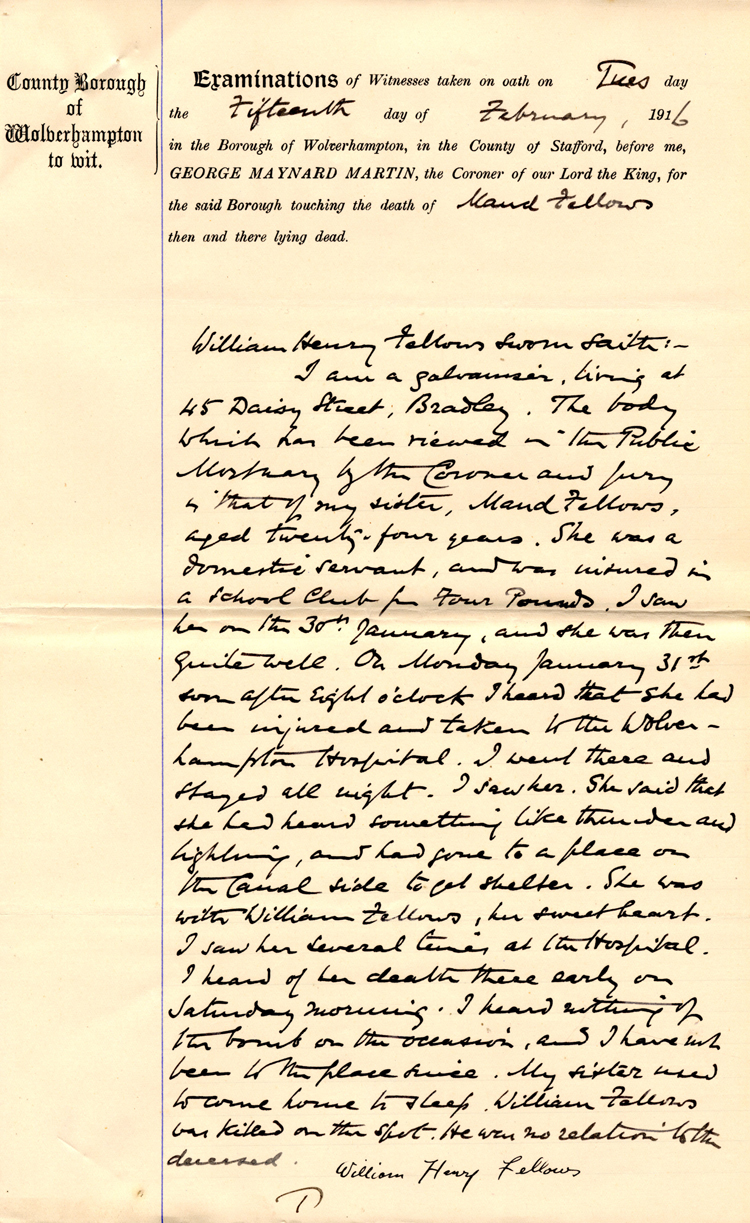 County Borough
of
Wolverhampton
to wit.
Examinations of Witnesses taken on oath on Tues day
the Fifteenth day of February, 1916
in the Borough of Wolverhampton, in the County of Stafford, before me,
GEORGE MAYNARD MARTIN, the Coroner of our Lord the King, for
the said Borough touching the death of Maud Fellows
then and there lying dead.
William Henry Fellows sworn saith:-
I am a galvaniser, living at
45 Daisy Street, Bradley. The body
which has been viewed in the Public
Mortuary by the Coroner and jury
is that of my sister, Maud Fellows,
aged twenty-four years. She was a
domestic servant, and was insured in
a School Club for Four Pounds. I saw
her on the 30th January, and she was then
quite well. On Monday January 31st
soon after Eight o'clock I heard that she had
been injured and taken to the Wolver-
hampton Hospital. I went there and
stayed all night. I saw her. She said that
she had heard something like thunder and
lightning, and had gone to a place on
the Canal side to get shelter. She was
with William Fellows, her sweetheart.
I saw her several times at the Hospital.
I heard of her death there early on
Saturday morning. I heard nothing of
the bomb on the occasion, and I have not
been to the place since. My sister used
to come home to sleep. William Fellows
was killed on the spot. He was no relation to the
deceased.
William Henry Fellows